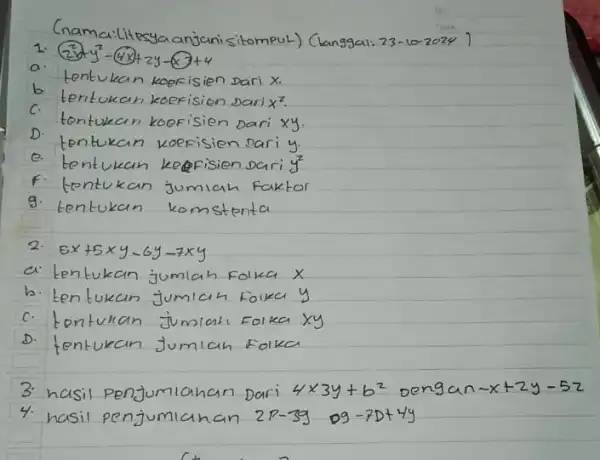 (nama:Litesya anjani sitompul) (tanggal: 23-10-2024)
1. 2x²+y²-4x+2y-x²+4
a. tentukan koefisien Dari x.
b tentukan koefisien Dari x².
C. tentukan koefisien Dari xy.
D. tentukan koefisien Dari y.
e. tentukan koefisien Dari y²
F. tentukan jumlah Faktor
g. tentukan komstenta
2. 5x+5xy-6y-7xy
a. tentukan jumlah Folka x
b. tentukan jumlah Folka y
C. tentukan jumlah Folka xy
D. tentukan jumlah Folka
3. hasil penjumlahan Dari 4x3y+b² Dengan -x+2y-5z
4. hasil penjumlahan 2P-3g Dg-7D+4y